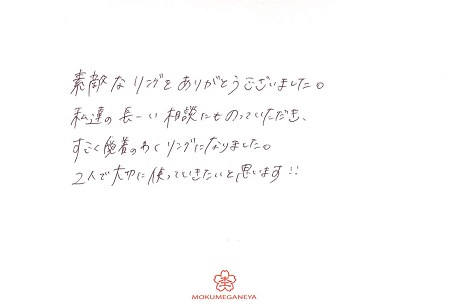 素敵なリングをありがとうございました。
私達の長ーい相談にものっていただき、
すごく愛着のわくリングになりました。
2人で大切に使っていきたいと思います!!
MOKUMEGANEYA